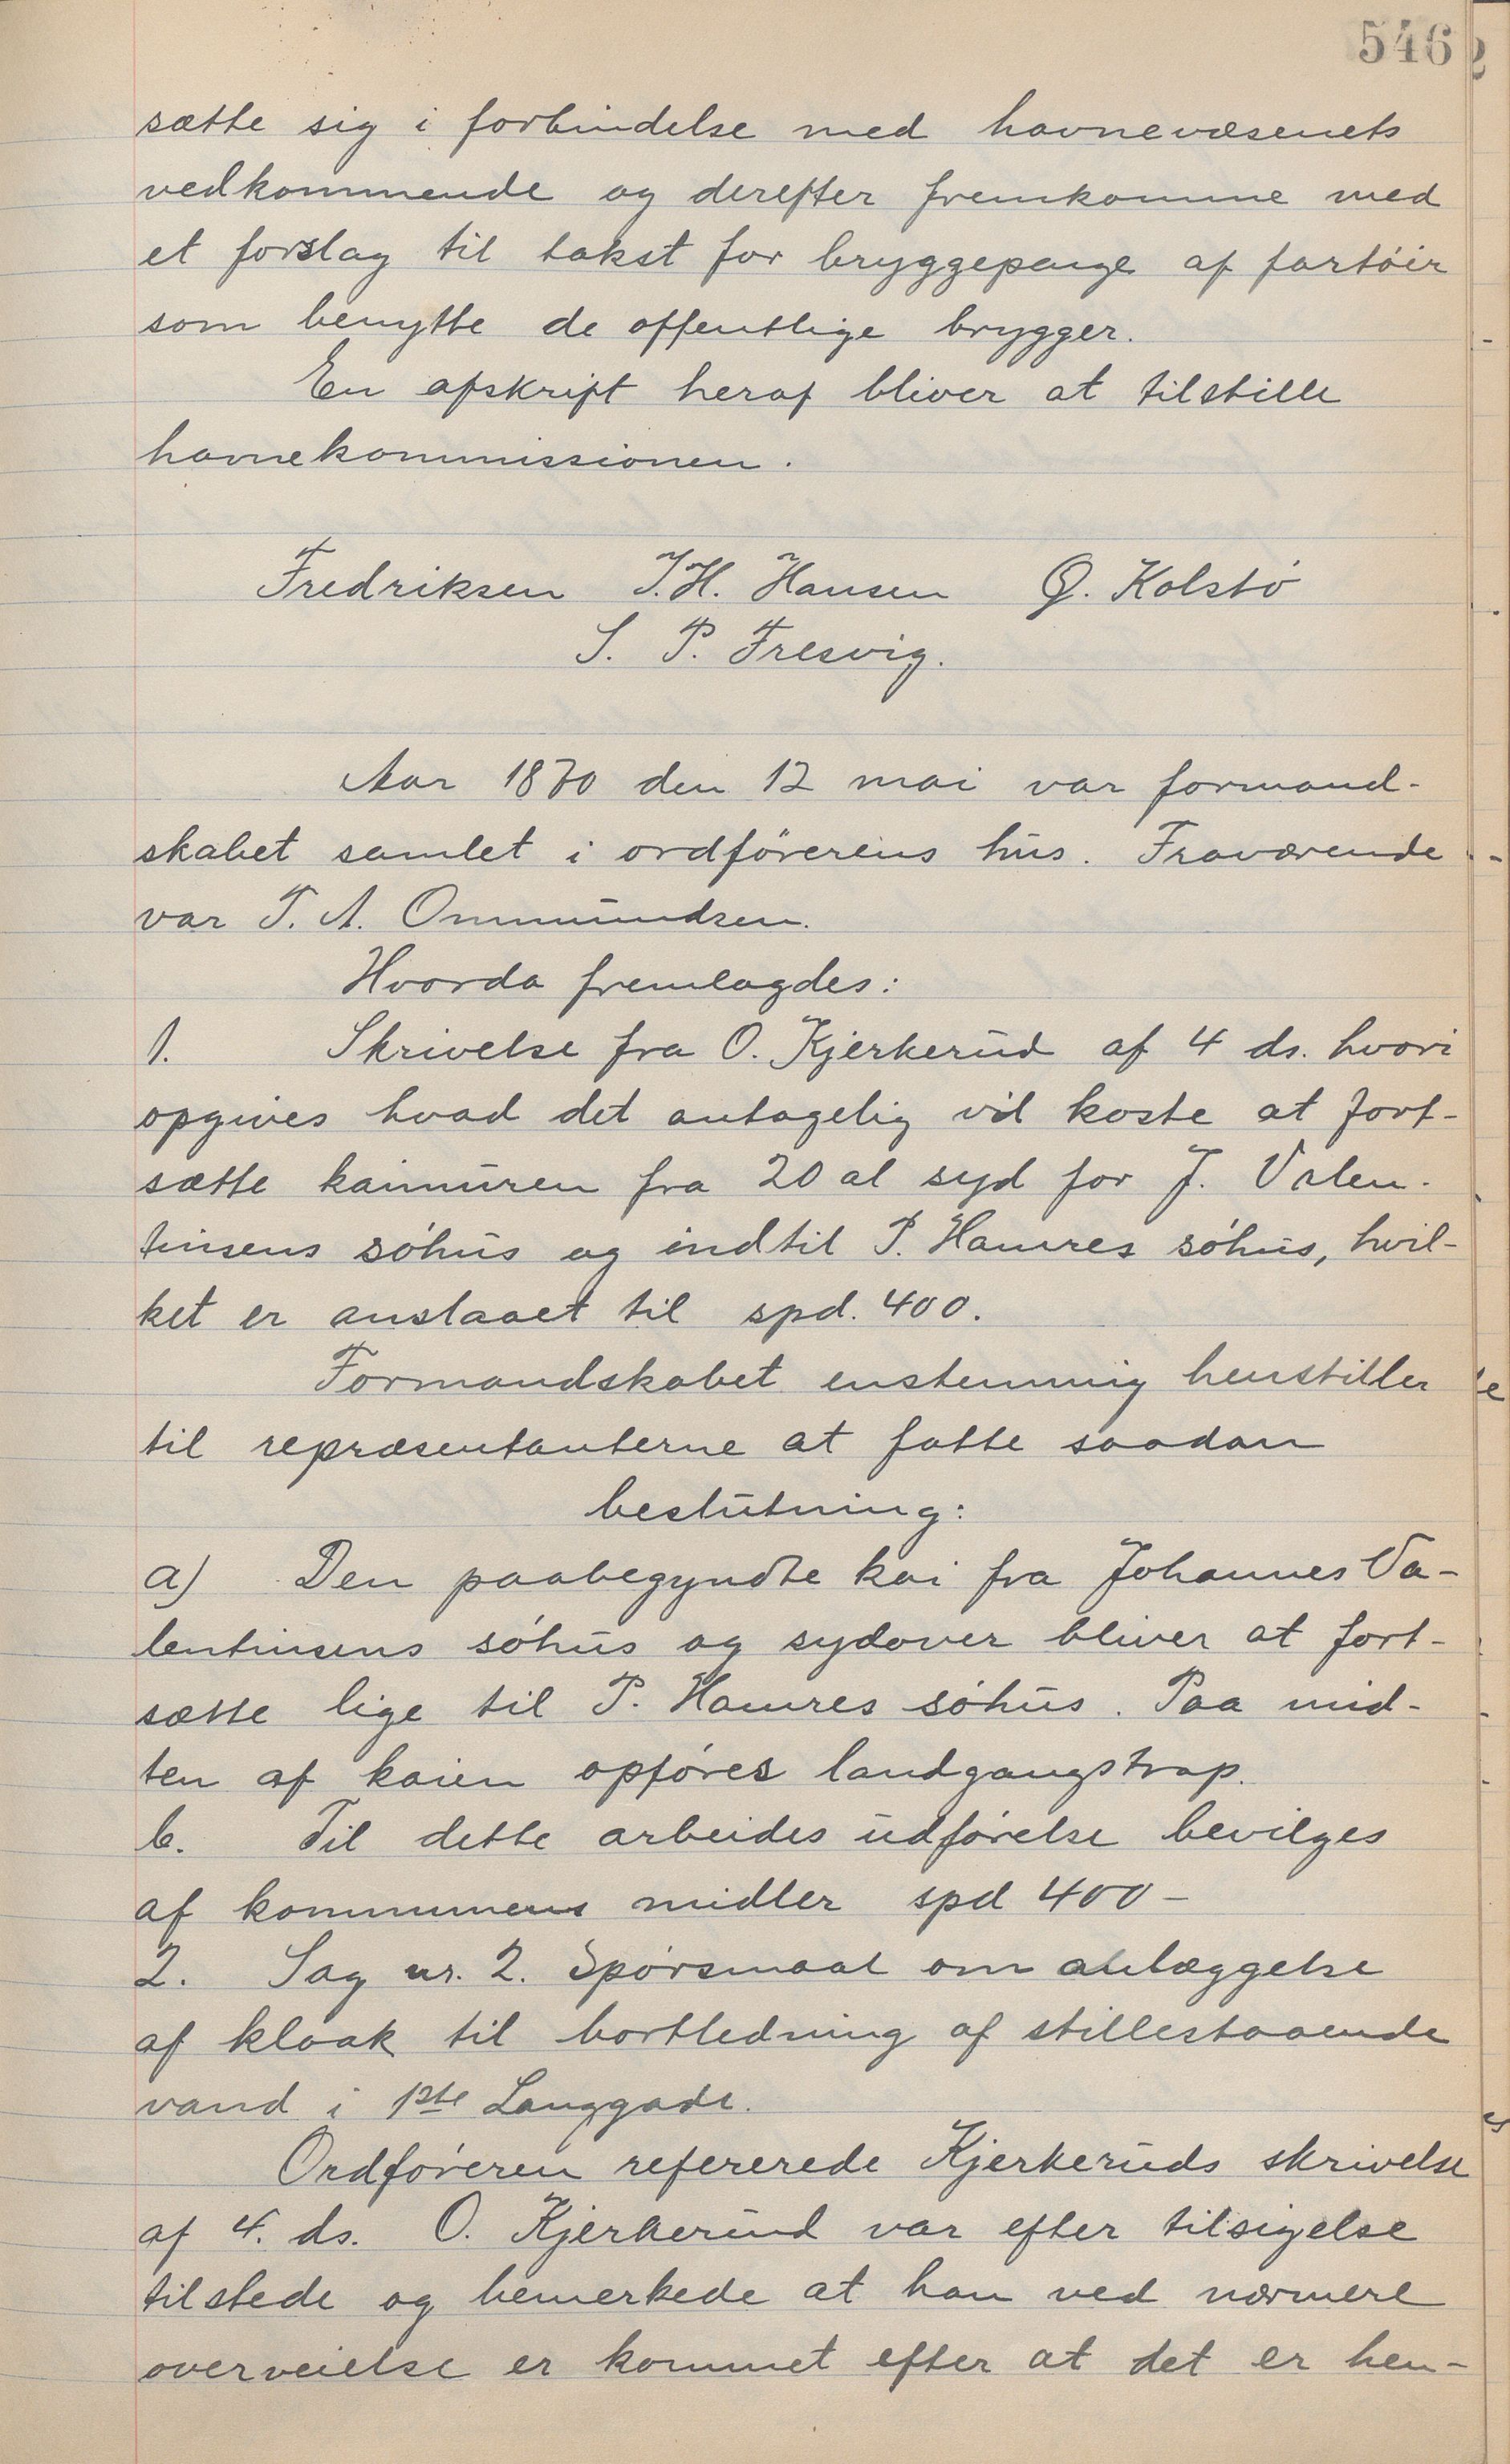 546
sætte sig i forbindelse med havnevæsenets
vedkommende og derefter fremkomme med
et forslag til takst for bryggepenge af fartöir
som benytte de offentlige brygger.
En afskrift heraf bliver at tilstille
havnekommissionen.
Fredriksen J. H. Hansen O. Kolstö
S. P. Fresvig.
Aar 1870 den 12 mai var formand-
skabet samlet i ordförerens hus. Fraværende
var T. A. Ommundsen.
Hvorda fremlagdes:
1. Skrivelse fra O. Kjerkerud af 4 ds. hvori
opgives hvad det antagelig vil koste at fort-
sætte kaimuren fra 20 al syd for J. Valen-
tinsens söhus og indtil P. Hamres söhus, hvil-
ket er anslaaet til spd. 400.
Formandskabet enstemmig henstiller
til repræsentanterne at fatte saadan
beslutning:
a) Den paabegyndte kai fra Johannes Va-
lentinsens söhus og sydover bliver at fort-
sætte lige til P. Hamres söhus. Paa mid-
ten af kaien opföres landgangstrap.
b. Til dette arbeides udförelse bevilges
af kommunens midler spd 400 -
2. Sag nr. 2. Spörsmaal om anlæggelse
af kloak til bortledning af stillestaaende
vand i 1ste Langgade.
Ordföreren refererede Kjerkeruds skrivelse
af 4. ds. O. Kjerkerud var efter tilsigelse
tilstede og bemerkede at han ved nærmere
overveielse er kommet efter at det er hen-